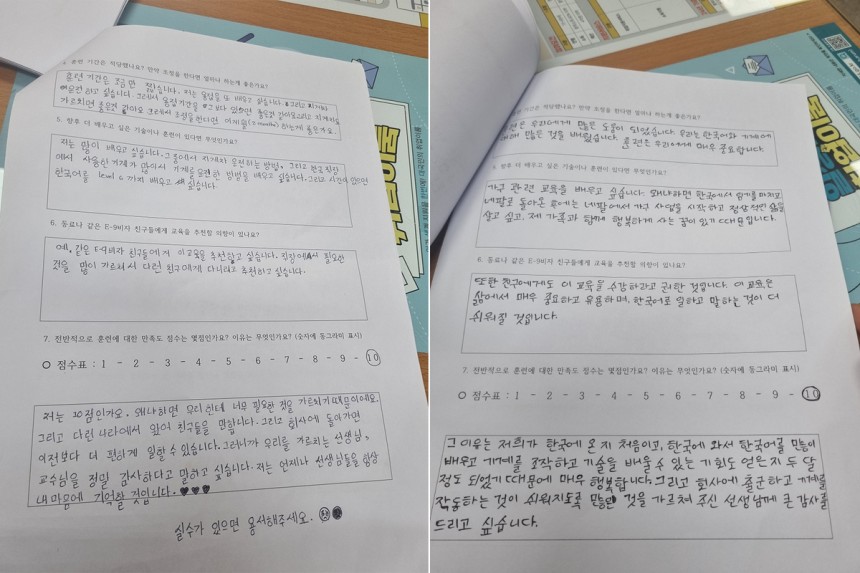 4. 훈련 기간은 적당했나요? 만약 조정을 한다면 얼마나 하는게 좋은가요?
훈련 기간은 조금만 짧습니다. 저는
배우고 싶습니다.
가르치면 좋은것 같아요
5. 향후 더 배우고 싶은 기술이나 훈련이 있다면 무엇인가요?
저는 많이 배우고 싶습니다. 그중에서 지게차 운전하는 방법, 그리고 한국 직장
에서 사용한 기계가 많아서 기계를 운련한 방법을 배우고 싶습니다. 그리고 시간이 있으면
한국어를 level 6 까지 배우고 싶습니다.
6. 동료나 같은 E-9비자 친구들에게 교육을 추천할 의향이 있나요?
예, 같은 E-9비자 친구들에게 이 교육을 추천하고 싶습니다. 직장에서 필요한
것을 많이 가르쳐서 다런 친구에게 다니라고 추천하고 싶습니다.
7. 전반적으로 훈련에 대한 만족도 점수는 몇점인가요? 이유는 무엇인가요? (숫자에 동그라미 표시)
점수표 : 1 - 2 - 3 - 4 - 5 - 6 - 7 - 8 - 9 - 10
저는 10점인가요. 왜냐하면 우리한테 너무 필요한 것을 가르치기 때문이에요.
그리고 다런 나라에서 왔어 친구들을 만납니다. 그리고 회사에 돌아가면
이전보다 더 편하게 일할 수 있습니다. 그러니까 우리를 가르치는 선생님,
교수님을 정말 감사하다고 말하고 싶습니다. 저는 언제나 선생님들을 항상
내 마음에 기억할 것입니다. ♥♥♥
실수가 있으면 용서해주세요.
기간은 적당했나요? 만약 조정을 한다면 얼마나 하는게 좋은가요?
련은 우리에게 많은 도움이 되었습니다. 우리는 한국어와 기계에
대해 많은 것을 배웠습니다. 훈련은 우리에게 매우 중요합니다.
5. 향후 더 배우고 싶은 기술이나 훈련이 있다면 무엇인가요?
가구 관련 교육을 배우고 싶습니다. 왜냐하면 한국에서 일기를 마치고
네팔로 돌아온 후에는 네팔에서 가구 사업을 시작하고 정상적인 삶을
살고 싶고, 제 가족과 함께 행복하게 사는 꿈이 있기 때문입니다.
6. 동료나 같은 E-9비자 친구들에게 교육을 추천할 의향이 있나요?
또한 친구에게도 이 교육을 수강하라고 권한 것입니다. 이 교육은
삶에서 매우 중요하고 유용하며, 한국어로 일하고 말하는 것이 더
쉬워질 것입니다.
7. 전반적으로 훈련에 대한 만족도 점수는 몇점인가요? 이유는 무엇인가요? (숫자에 동그라미 표시)
점수표 : 1 - 2 - 3 - 4 - 5 - 6 - 7 - 8 - 9 - 10
그 이유는 저희가 한국에 온 지 처음이고, 한국에 와서 한국어를 많이
배우고 기계를 조작하고 기술을 배울 수 있는 기회도 얻은지 두 달
정도 되었기 때문에 매우 행복합니다. 그리고 회사에 출근하고 기계를
작동하는 것이 쉬워지도록 많은 것을 가르쳐 주신 선생님께 큰 감사를
드리고 싶습니다.